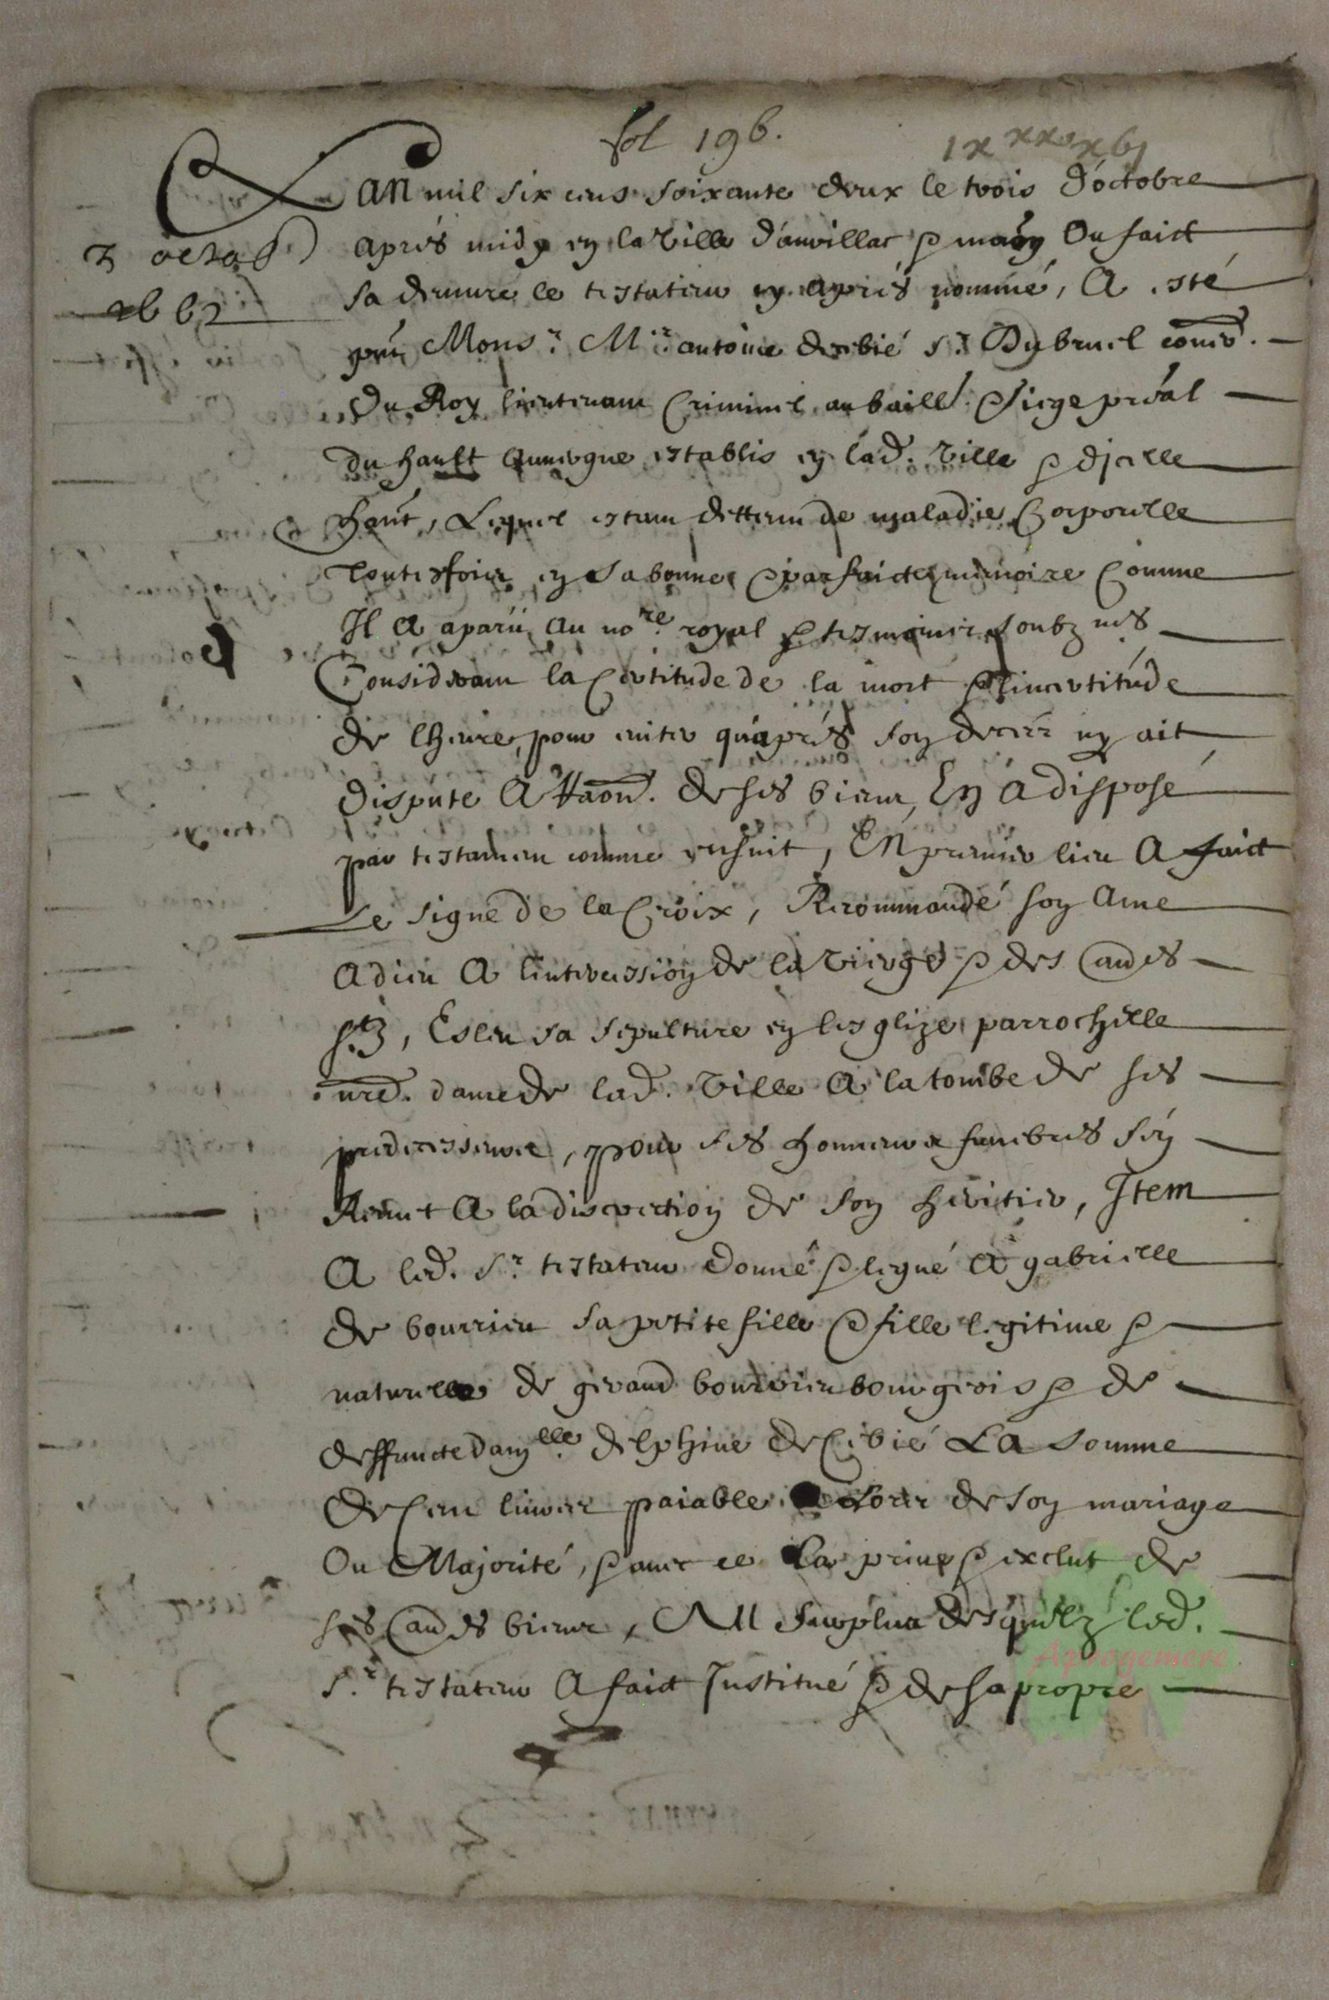 fol 196.
3 octob
1662
L'an mil six cens soixante deux le trois d'octobre
aprés midy en la ville d'auvillac & maison Ou faict
sa demure le testateur cy aprés nommé, A esté
pnt Mons.r M.re antoine de cibié s.r Dubruel conser.
du Roy lieutenant Criminel au baill. & siege presal
du hault auvergne establis en lad. ville & d'jcelle
hant, Lequel estant dettenu de maladie Corporelle
toutesfois en sa bonne & parfaicte memoire Comme
Il a aparu au no.re royal & tesmoins soubz nes
Considerant la Certitude de la mort & l'incertitude
de lheure, pour eviter qu'aprés son decés ny ait
dispute A raon. de ses biens, En a disposé
par testament comme ensuit, EN premier lieu A faict
Le signe de la Croix, Recommandé son Ame
a dieu A l'intercession de la vierge & des aues
stz, Esleu sa sepulture en lesglize parrochelle
nre. dame de lad. ville A la tombe de ses
predecesseurs, pour ses honneurs funebres s'en
Remet A la discrection de son heritier, Jtem
A led. s.r testateur donné & legué A gabrielle
de bourrieu sa petite fille & fille legitime &
naturelle de geraud bourrieu bourgeois & de
deffuncte dam.lle delphine de Cibié La somme
de Cent livres paiable lors de son mariage
Ou Majorité, & avec ce La prive & exclut de
ses aues biens, AU surplus desquelz led.
s.r testateur A faict Justitué & de sa propre
Aprogemere